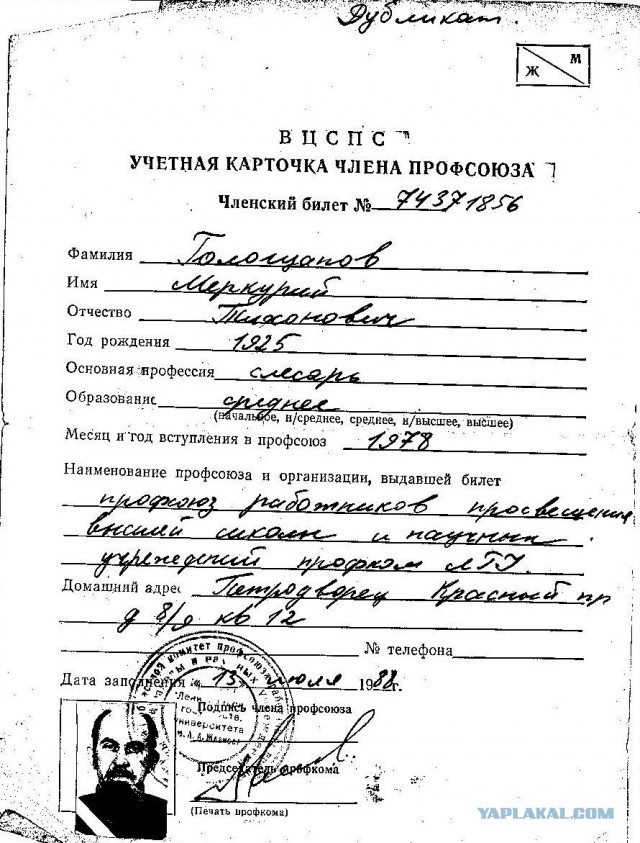 Дубликат.
Ж М
ВЦСПС
УЧЕТНАЯ КАРТОЧКА ЧЛЕНА ПРОФСОЮЗА
Членский билет № 74371856
Фамилия Гологцапов
Имя Меркурий
Отчество Тихонович
Год рождения 1925
Основная профессия слесарь
Образование среднее
(начальное, н/среднее, среднее, н/высшее, высшее)
Месяц и год вступления в профсоюз 1978
Наименование профсоюза и организации, выдавшей билет
профсоюз работников просвещения
высшей школы и научных
учреждений профком ЛГУ.
Домашний адрес Петродворец Красный пр
д 8/9 кв 12
№ телефона
Дата заполнения 13 июля 1988 г.
Подпись члена профсоюза
Председатель профкома
(Печать профкома)
YAPLAKAL.COM